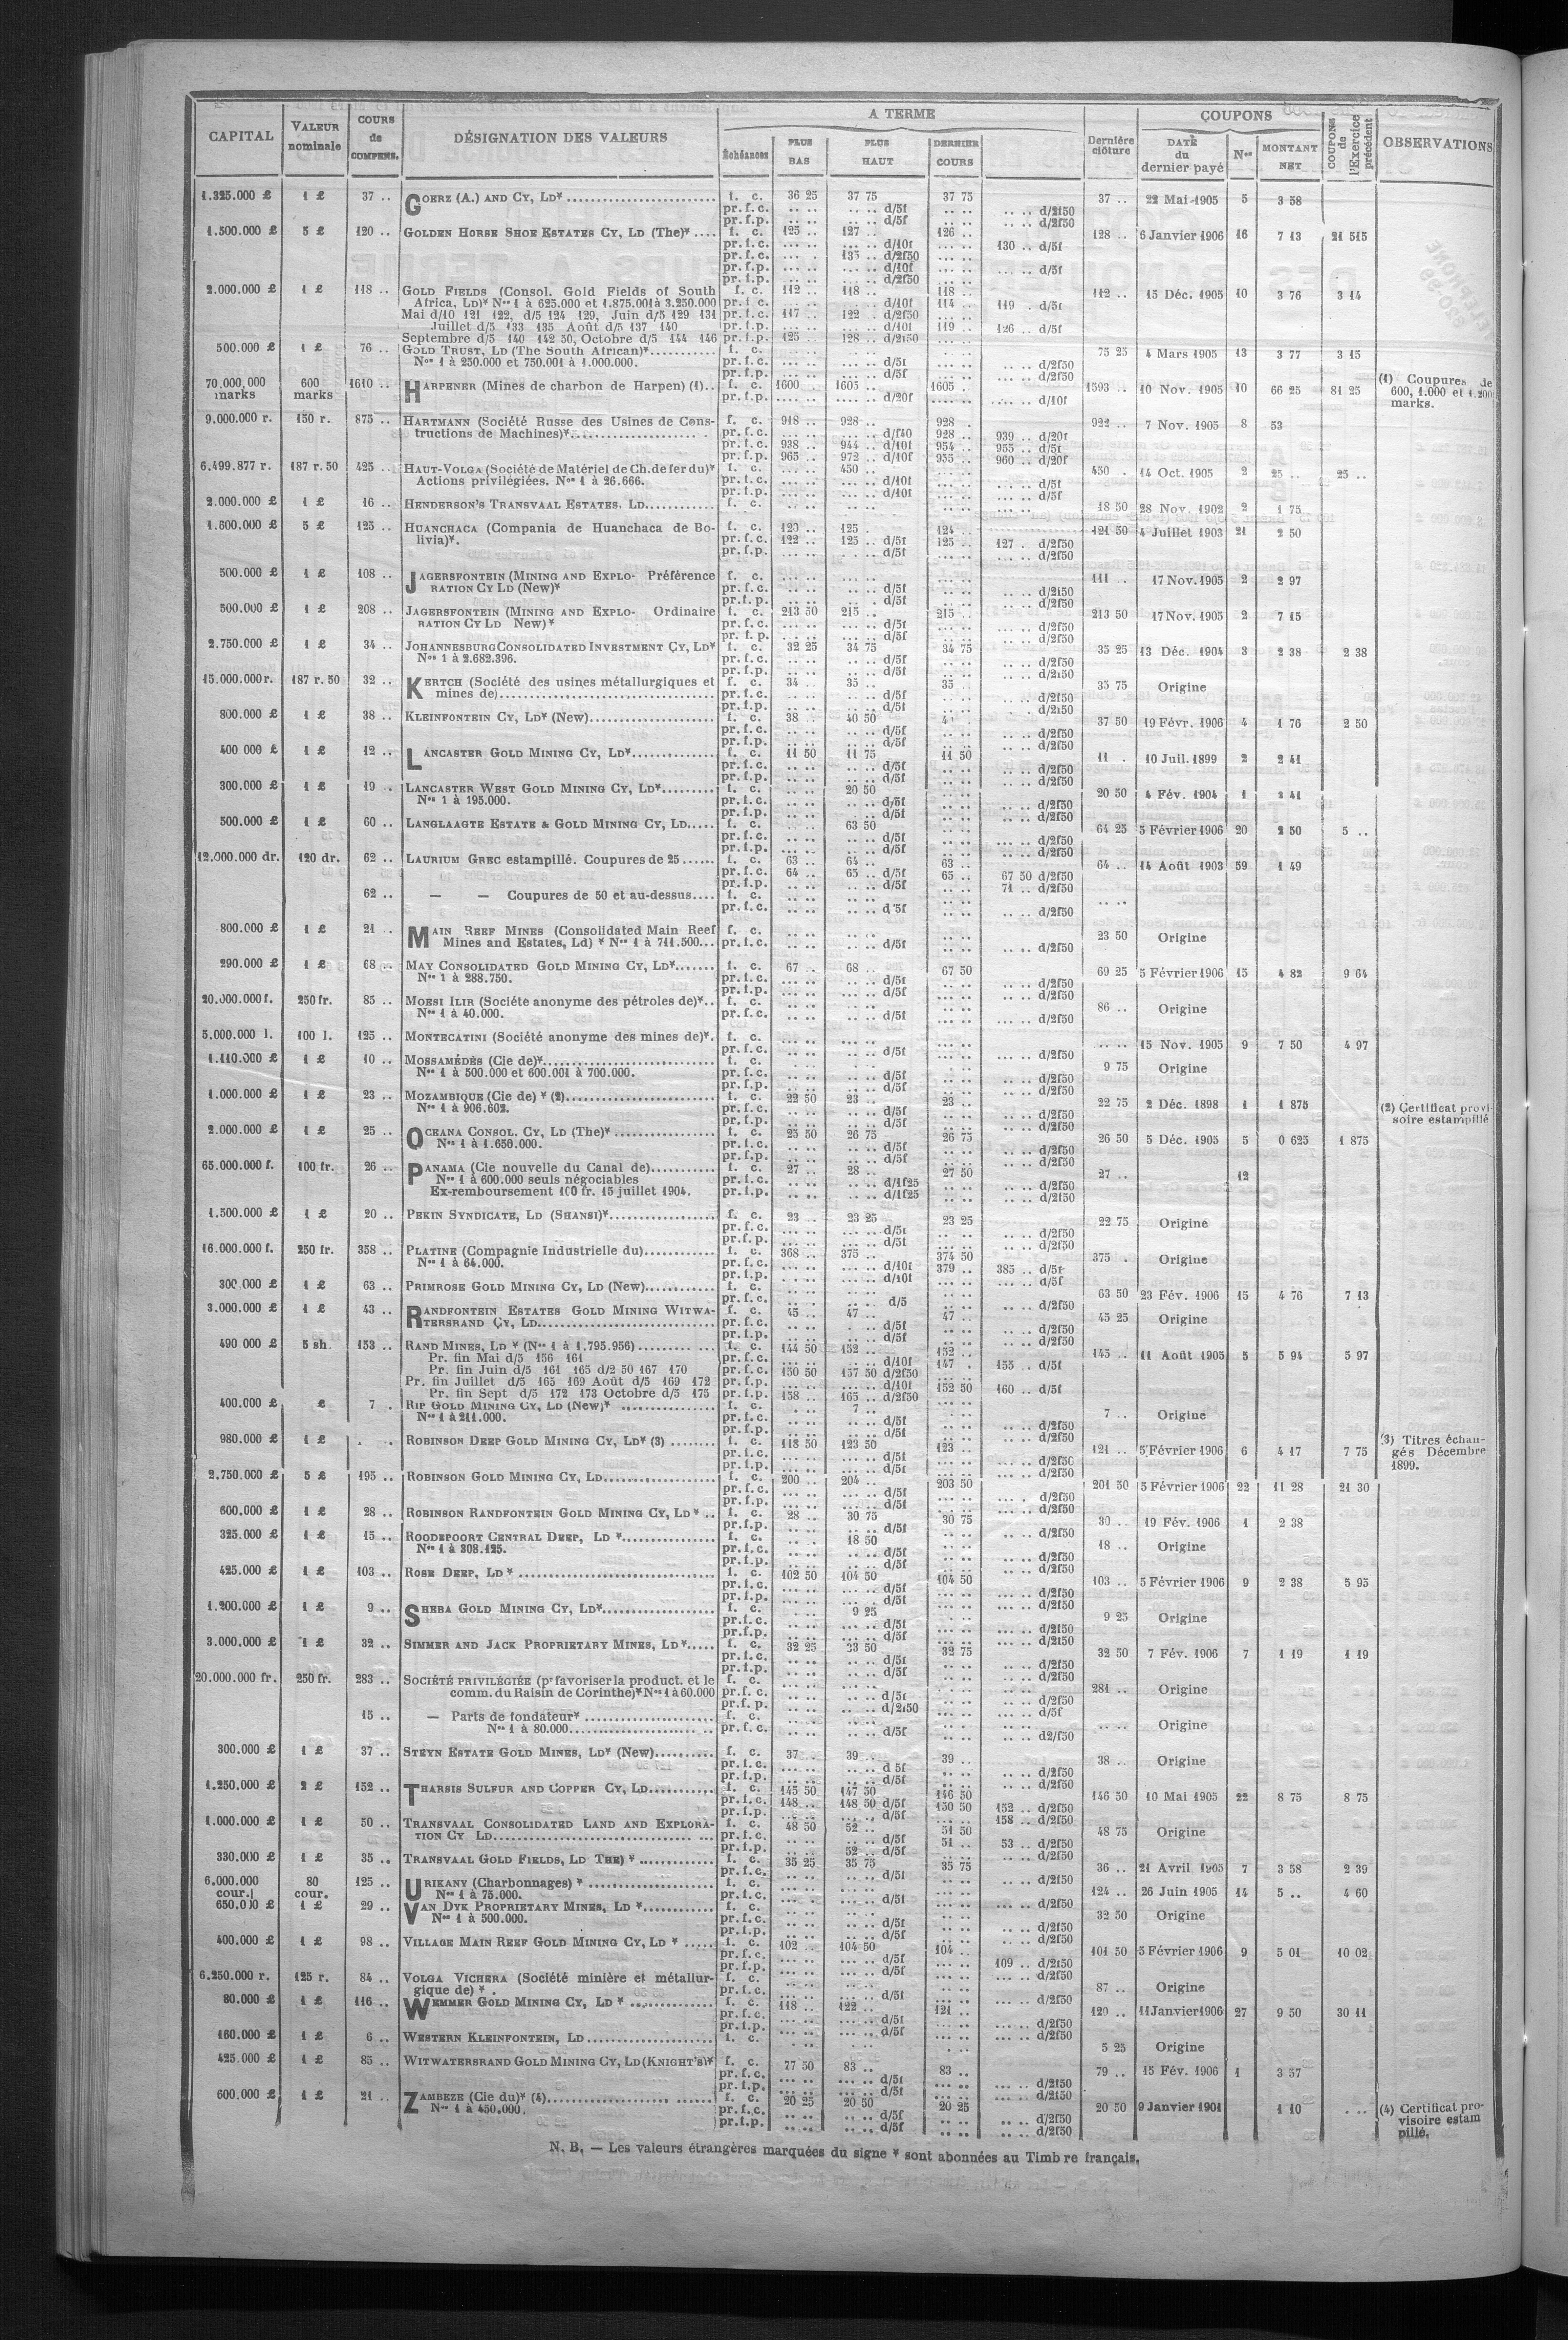 CAPITAL | VALEUR nominale | COURS de COMPENS. | DÉSIGNATION DES VALEURS | A TERME | Dernière clôture | COUPONS | COUPONS de l'Exercice précédent | OBSERVATIONS
Échéances | PLUS BAS | PLUS HAUT | DERNIER COURS | DATE du dernier payé | Nos | MONTANT NET
1.325.000 £ 1 £ 37 .. GOERZ (A.) AND CY, LD* f. c. 36 25 37 75 37 75 37 .. 22 Mai 1905 5 3 58
pr. f. c. .. .. .. .. d/5f .. .. .. .. d/2f50
pr. f. p. .. .. .. .. d/5f .. .. .. .. d/2f50
1.500.000 £ 5 £ 120 .. GOLDEN HORSE SHOE ESTATES CY, LD (The)* .... f. c. 125 .. 127 .. 126 .. 128 .. 6 Janvier 1906 16 7 13 21 515
pr. f. c. ... .. ... .. d/10f ... .. 130 .. d/5f
pr. f. c. ... . 135 .. d/2f50
pr. f. p. ... .. ... .. d/10f ... .. ... .. d/5f
pr. f. p. ... .. ... .. d/2f50
2.000.000 £ 1 £ 118 .. GOLD FIELDS (Consol. Gold Fields of South f. c. 112 .. 118 .. 118 .. 112 .. 15 Déc. 1905 10 3 76 3 14
Africa, LD)* Nos 1 à 625.000 et 1.875.001 à 3.250.000 pr. f. c. ... .. ... .. d/10f 114 .. 119 . d/5f
Mai d/10 121 122, d/5 124 129, Juin d/5 129 131 pr. f. c. 117 .. 122 .. d/2f50
Juillet d/5 133 135 Août d/5 137 140 pr. f. p. ... .. ... .. d/10f 119 .. 126 .. d/5f
Septembre d/5 140 142 50, Octobre d/5 144 146 pr. f. p. 125 .. 128 .. d/2f50
500.000 £ 1 £ 76 .. GOLD TRUST, LD (The South African)* f. c. 75 25 4 Mars 1905 13 3 77 3 15
Nos 1 à 250.000 et 750.001 à 1.000.000. pr. f. c. .. .. .. .. d/5f d/2f50
pr. f. p. .. .. .. .. d/5f d/2f50
70.000.000 marks 600 marks 1610 .. HARPENER (Mines de charbon de Harpen) (1).. f. c. 1600 . 1605 .. 1605 . 1593 .. 10 Nov. 1905 10 66 25 81 25 (1) Coupures de 600, 1.000 et 1.200 marks.
pr. f. p. .... .. .... .. d/20f .... .. .... .. d/10f
9.000.000 r. 150 r. 875 .. HARTMANN (Société Russe des Usines de Cons- f. c. 918 .. 928 .. 928 . 922 .. 7 Nov. 1905 8 53
tructions de Machines)* pr. f. c. ... .. ... .. d/f40 928 .. 939 .. d/20f
pr. f. c. 938 .. 944 .. d/10f 954 .. 955 .. d/5f
pr. f. p. 965 .. 972 .. d/10f 955 .. 960 .. d/20f
6.499.877 r. 187 r. 50 425 .. HAUT-VOLGA (Société de Matériel de Ch. de fer du)* f. c. ... .. 450 .. 450 . 14 Oct. 1905 2 25 .. 25 ..
Actions privilégiées. Nos 1 à 26.666. pr. f. c. ... .. ... .. d/10f ... .. d/5f
pr. f. p. ... .. ... .. d/10f ... .. d/5f
2.000.000 £ 1 £ 16 .. HENDERSON'S TRANSVAAL ESTATES, LD f. c. 18 50 28 Nov. 1902 2 1 75
1.600.000 £ 5 £ 125 .. HUANCHACA (Compania de Huanchaca de Bo- f. c. 120 .. 125 .. 124 .. 121 50 4 Juillet 1903 21 2 50
livia)*. pr. f. c. 122 .. 125 .. d/5f 125 .. 127 . d/2f50
pr. f. p. ... .. ... .. d/5f ... .. ... .. d/2f50
500.000 £ 1 £ 108 .. JAGERSFONTEIN (MINING AND EXPLO- Préférence f. c. 111 . 17 Nov. 1905 2 2 97
RATION CY LD (New)* pr. f. c. ... .. ... .. d/5f ... .. d/2f50
pr. f. p. ... .. ... .. d/5f ... .. d/2f50
500.000 £ 1 £ 208 .. JAGERSFONTEIN (MINING AND EXPLO- Ordinaire f. c. 213 50 215 .. 215 .. 213 50 17 Nov. 1905 2 7 15
RATION CY LD New)* pr. f. c. ... .. ... .. d/5f ... .. d/2f50
pr. f. p. ... .. ... .. d/5f ... .. d/2f50
2.750.000 £ 1 £ 34 .. JOHANNESBURG CONSOLIDATED INVESTMENT CY, LD* f. c. 32 25 34 75 34 75 35 25 13 Déc. 1904 3 2 38 2 38
Nos 1 à 2.682.396. pr. f. c. .. .. .. .. d/5f .. .. d/2f50
pr. f. p. .. .. .. .. d/5f .. .. d/2f50
15.000.000 r. 187 r. 50 32 .. KERTCH (Société des usines métallurgiques et f. c. 34 . 35 .. 35 . 35 75 Origine
mines de) pr. f. c. .. .. .. .. d/5f .. .. d/2f50
pr. f. p. .. .. .. .. d/5f .. .. d/2f50
800.000 £ 1 £ 38 .. KLEINFONTEIN CY, LD* (New) f. c. 38 .. 40 50 37 50 19 Févr. 1906 4 1 76 2 50
pr. f. c. .. .. .. .. d/5f .. .. d/2f50
pr. f. p. .. .. .. .. d/5f .. .. d/2f50
400 000 £ 1 £ 12 .. LANCASTER GOLD MINING CY, LD* f. c. 11 50 11 75 11 50 11 . 10 Juil. 1899 2 2 41
pr. f. c. .. .. .. .. d/5f .. .. d/2f50
pr. f. p. .. .. .. .. d/5f .. .. d/2f50
300.000 £ 1 £ 19 .. LANCASTER WEST GOLD MINING CY, LD* f. c. .. .. 20 50 20 50 4 Fév. 1904 1 2 41
Nos 1 à 195.000. pr. f. c. .. .. .. .. d/5f .. .. d/2f50
pr. f. p. .. .. .. .. d/5f .. .. d/2f50
500.000 £ 1 £ 60 .. LANGLAAGTE ESTATE & GOLD MINING CY, LD f. c. 63 50 64 25 5 Février 1906 20 2 50 5 ..
pr. f. c. .. .. .. .. d/5f .. .. d/2f50
pr. f. p. .. .. .. .. d/5f .. .. d/2f50
12.000.000 dr. 120 dr. 62 .. LAURIUM GREC estampillé. Coupures de 25 f. c. 63 .. 64 .. 63 .. 64 .. 14 Août 1903 59 1 49
pr. f. c. 64 .. 65 .. d/5f 65 .. 67 50 d/2f50
pr. f. p. .. .. .. .. d/5f .. .. 71 .. d/2f50
62 .. — — Coupures de 50 et au-dessus f. c. .. .. .. .. .. ..
pr. f. c. .. .. .. .. d/5f .. .. .. .. d/2f50
800.000 £ 1 £ 21 .. MAIN REEF MINES (Consolidated Main Reef f. c. 23 50 Origine
Mines and Estates, Ld) * Nos 1 à 711.500 pr. f. c. .. .. .. .. d/5f .. .. d/2f50
290.000 £ 1 £ 68 .. MAY CONSOLIDATED GOLD MINING CY, LD* f. c. 67 . 68 .. 67 50 69 25 5 Février 1906 15 4 82 9 64
Nos 1 à 288.750. pr. f. c. .. .. .. .. d/5f .. .. d/2f50
pr. f. p. .. .. .. .. d/5f .. .. d/2f50
20.000.000 f. 250 fr. 85 .. MORSI ILIR (Société anonyme des pétroles de)* f. c. 86 .. Origine
Nos 1 à 40.000. pr. f. c. .. .. .. .. d/5f ... .. d/2f50
5.000.000 l. 100 l. 125 .. MONTECATINI (Société anonyme des mines de)*. f. c. ... .. 15 Nov. 1905 9 7 50 4 97
pr. f. c. d/5f ... .. d/2f50
1.110.000 £ 1 £ 10 .. MOSSAMÉDÈS (Cie de)* f. c. 9 75 Origine
Nos 1 à 500.000 et 600.001 à 700.000. pr. f. c. .. .. .. .. d/5f .. .. d/2f50
pr. f. p. .. .. .. .. d/5f .. .. d/2f50
1.000.000 £ 1 £ 23 .. MOZAMBIQUE (Cie de) * (2) f. c. 22 50 23 .. 23 .. 22 75 2 Déc. 1898 1 1 875 (2) Certificat provi- soire estampillé
Nos 1 à 906.602. pr. f. c. .. .. .. .. d/5f .. .. d/2f50
pr. f. p. .. .. .. .. d/5f .. .. d/2f50
2.000.000 £ 1 £ 25 .. OCEANA CONSOL. CY, LD (The)* f. c. 25 50 26 75 26 75 26 50 5 Déc. 1905 5 0 625 1 875
Nos 1 à 1.650.000. pr. f. c. .. .. .. .. d/5f .. .. d/2f50
pr. f. p. .. .. .. .. d/5f .. .. d/2f50
65.000.000 f. 100 fr. 26 .. PANAMA (Cie nouvelle du Canal de) f. c. 27 .. 28 .. 27 50 27 .. 12
Nos 1 à 600.000 seuls négociables pr. f. c. .. .. .. .. d/1f25 .. .. d/2f50
Ex-remboursement 100 fr. 15 juillet 1904. pr. f. p. .. .. .. .. d/1f25 .. .. d/2f50
1.500.000 £ 1 £ 20 .. PEKIN SYNDICATE, LD (SHANSI)* f. c. 23 .. 23 25 23 25 22 75 Origine
pr. f. c. ... .. ... .. d/5f ... .. d/2f50
pr. f. p. ... .. ... .. d/5f ... .. d/2f50
16.000.000 f. 250 fr. 358 .. PLATINE (Compagnie Industrielle du) f. c. 368 .. 375 .. 374 50 375 . Origine
Nos 1 à 64.000. pr. f. c. ... .. ... .. d/10f 379 .. 385 .. d/5f
pr. f. p. ... .. ... .. d/10f ... .. ... .. d/5f
300.000 £ 1 £ 63 .. PRIMROSE GOLD MINING CY, LD (New) f. c. 63 50 23 Fév. 1906 15 4 76 7 13
pr. f. c. .. .. .. .. d/5 .. .. d/2f50
3.000.000 £ 1 £ 43 .. RANDFONTEIN ESTATES GOLD MINING WITWA- f. c. 45 .. 47 .. 47 .. 45 25 Origine
TERSRAND CY, LD pr. f. c. .. .. .. .. d/5f .. .. d/2f50
pr. f. p. .. .. .. .. d/5f .. .. d/2f50
490 000 £ 5 sh. 153 .. RAND MINES, LD * (Nos 1 à 1.795.956) f. c. 144 50 152 .. 152 .. 145 .. 11 Août 1905 5 5 94 5 97
Pr. fin Mai d/5 156 161 pr. f. c. ... .. ... .. d/10f 147 . 155 .. d/5f
Pr. fin Juin d/5 161 165 d/2 50 167 170 pr. f. c. 150 50 157 50 d/2f50
Pr. fin Juillet d/5 165 169 Août d/5 169 172 pr. f. p. ... .. ... .. d/10f 152 50 160 .. d/5f
Pr. fin Sept d/5 172 173 Octobre d/5 175 pr. f. p. 158 .. 165 .. d/2f50
400.000 £ £ 7 . RIP GOLD MINING CY, LD (New)* f. c. 7 .. 7 .. Origine
Nos 1 à 211.000. pr. f. c. .. .. .. .. d/5f .. .. d/2f50
pr. f. p. .. .. .. .. d/5f .. .. d/2f50
980.000 £ 1 £ . . ROBINSON DEEP GOLD MINING CY, LD* (3) f. c. 118 50 123 50 123 .. 121 .. 5 Février 1906 6 4 17 7 75 (3) Titres échan- gés Décembre 1899.
pr. f. c. ... .. ... .. d/5f ... .. d/2f50
pr. f. p. ... .. ... .. d/5f ... .. d/2f50
2.750.000 £ 5 £ 195 .. ROBINSON GOLD MINING CY, LD f. c. 200 .. 204 .. 203 50 201 50 5 Février 1906 22 11 28 21 30
pr. f. c. ... .. ... .. d/5f ... . d/2f50
pr. f. p. ... .. ... .. d/5f ... .. d/2f50
600.000 £ 1 £ 28 .. ROBINSON RANDFONTEIN GOLD MINING CY, LD * .. f. c. 28 .. 30 75 30 75 30 .. 19 Fév. 1906 1 2 38
pr. f. p. .. .. .. .. d/5f .. .. d/2f50
325.000 £ 1 £ 15 .. ROODEPOORT CENTRAL DEEP, LD * f. c. 18 50 18 .. Origine
Nos 1 à 308.125. pr. f. c. .. .. .. .. d/5f .. .. d/2f50
pr. f. p. .. .. .. .. d/5f .. .. d/2f50
425.000 £ 1 £ 103 .. ROSE DEEP, LD * f. c. 102 50 104 50 104 50 103 .. 5 Février 1906 9 2 38 5 95
pr. f. c. ... .. ... .. d/5f ... .. d/2f50
pr. f. p. ... .. ... .. d/5f ... .. d/2f50
1.200.000 £ 1 £ 9 .. SHEBA GOLD MINING CY, LD* f. c. 9 25 9 25 Origine
pr. f. c. .. .. .. .. d/5f .. .. d/2f50
pr. f. p. .. .. .. .. d/5f .. .. d/2f50
3.000.000 £ 1 £ 32 .. SIMMER AND JACK PROPRIETARY MINES, LD* f. c. 32 25 33 50 32 75 32 50 7 Fév. 1906 7 1 19 1 19
pr. f. c. .. .. .. .. d/5f .. .. d/2f50
pr. f. p. .. .. .. .. d/5f .. .. d/2f50
20.000.000 fr. 250 fr. 283 .. SOCIÉTÉ PRIVILÉGIÉE (pr favoriser la product. et le f. c. 281 .. Origine
comm. du Raisin de Corinthe)* Nos 1 à 60.000 pr. f. c. .. .. .. .. d/5f .. .. d/2f50
pr. f. p. .. .. .. .. d/2f50 .. .. d/5f
15 .. — Parts de fondateur* f. c. .. .. Origine
Nos 1 à 80.000 pr. f. c. .. .. .. .. d/5f .. .. d2/f50
300.000 £ 1 £ 37 .. STEYN ESTATE GOLD MINES, LD* (New) f. c. 37 . 39 .. 39 .. 38 .. Origine
pr. f. c. .. .. .. .. d 5f .. .. d/2f50
pr. f. p. .. .. .. .. d/5f .. .. d/2f50
1.250.000 £ 2 £ 152 .. THARSIS SULFUR AND COPPER CY, LD f. c. 145 50 147 50 146 50 146 50 10 Mai 1905 22 8 75 8 75
pr. f. c. 148 .. 148 50 d/5f 150 50 152 .. d/2f50
pr. f. p. ... .. ... .. d/5f ... .. 158 .. d/2f50
1.000.000 £ 1 £ 50 .. TRANSVAAL CONSOLIDATED LAND AND EXPLORA- f. c. 48 50 52 .. 51 50 48 75 Origine
TION CY LD pr. f. c. .. .. .. .. d/5f 51 .. 53 .. d/2f50
pr. f. p. .. .. 52 .. d/5f .. .. .. .. d/2f50
330.000 £ 1 £ 35 .. TRANSVAAL GOLD FIELDS, LD THE) * f. c. 35 25 35 75 35 75 36 .. 21 Avril 1905 7 3 58 2 39
pr. f. c. .. .. .. .. d/5f .. .. d/2f50
6.000.000 cour. 80 cour. 125 .. URIKANY (Charbonnages) * f. c. 124 .. 26 Juin 1905 14 5 .. 4 60
Nos 1 à 75.000. pr. f. c. ... .. ... .. d/5f ... .. d/2f50
650.000 £ 1 £ 29 .. VAN DYK PROPRIETARY MINES, LD * f. c. 32 50 Origine
Nos 1 à 500.000. pr. f. c. .. .. .. .. d/5f .. .. d/2f50
pr. f. p. .. .. .. .. d/5f .. .. d/2f50
400.000 £ 1 £ 98 .. VILLAGE MAIN REEF GOLD MINING CY, LD * f. c. 102 .. 104 50 104 .. 101 50 5 Février 1906 9 5 01 10 02
pr. f. c. ... .. ... .. d/5f ... .. 109 .. d/2f50
pr. f. p. ... .. ... .. d/5f ... .. ... .. d/2f50
6.250.000 r. 125 r. 84 .. VOLGA VICHERA (Société minière et métallur- f. c. 87 .. Origine
gique de) * . pr. f. c. ... .. ... .. d/5f ... .. d/2f50
80.000 £ 1 £ 116 .. WEMMER GOLD MINING CY, LD * f. c. 118 .. 122 .. 121 .. 120 .. 11 Janvier 1906 27 9 50 30 11
pr. f. c. ... .. ... .. d/5f ... .. d/2f50
pr. f. p. ... .. ... .. d/5f ... .. d/2f50
160.000 £ 1 £ 6 .. WESTERN KLEINFONTEIN, LD f. c. 5 25 Origine
425.000 £ 1 £ 85 .. WITWATERSRAND GOLD MINING CY, LD (KNIGHT'S)* f. c. 77 50 83 .. 83 .. 79 .. 15 Fév. 1906 1 3 57
pr. f. c. ... .. ... .. d/5f ... .. d/2f50
pr. f. p. ... .. ... .. d/5f ... .. d/2f50
600.000 £ 1 £ 21 .. ZAMBEZE (Cie du)* (4) f. c. 20 25 20 50 20 25 20 50 9 Janvier 1901 1 10 . .. (4) Certificat pro- visoire estam pillé.
Nos 1 à 450.000. pr. f. c. .. .. .. .. d/5f .. .. d/2f50
pr. f. p. .. .. .. .. d/5f .. .. d/2f50
N. B. — Les valeurs étrangères marquées du signe * sont abonnées au Timbre français.